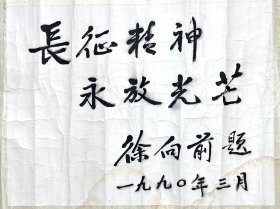 長征精神
永放光芒
徐向前題
一九九〇年三月